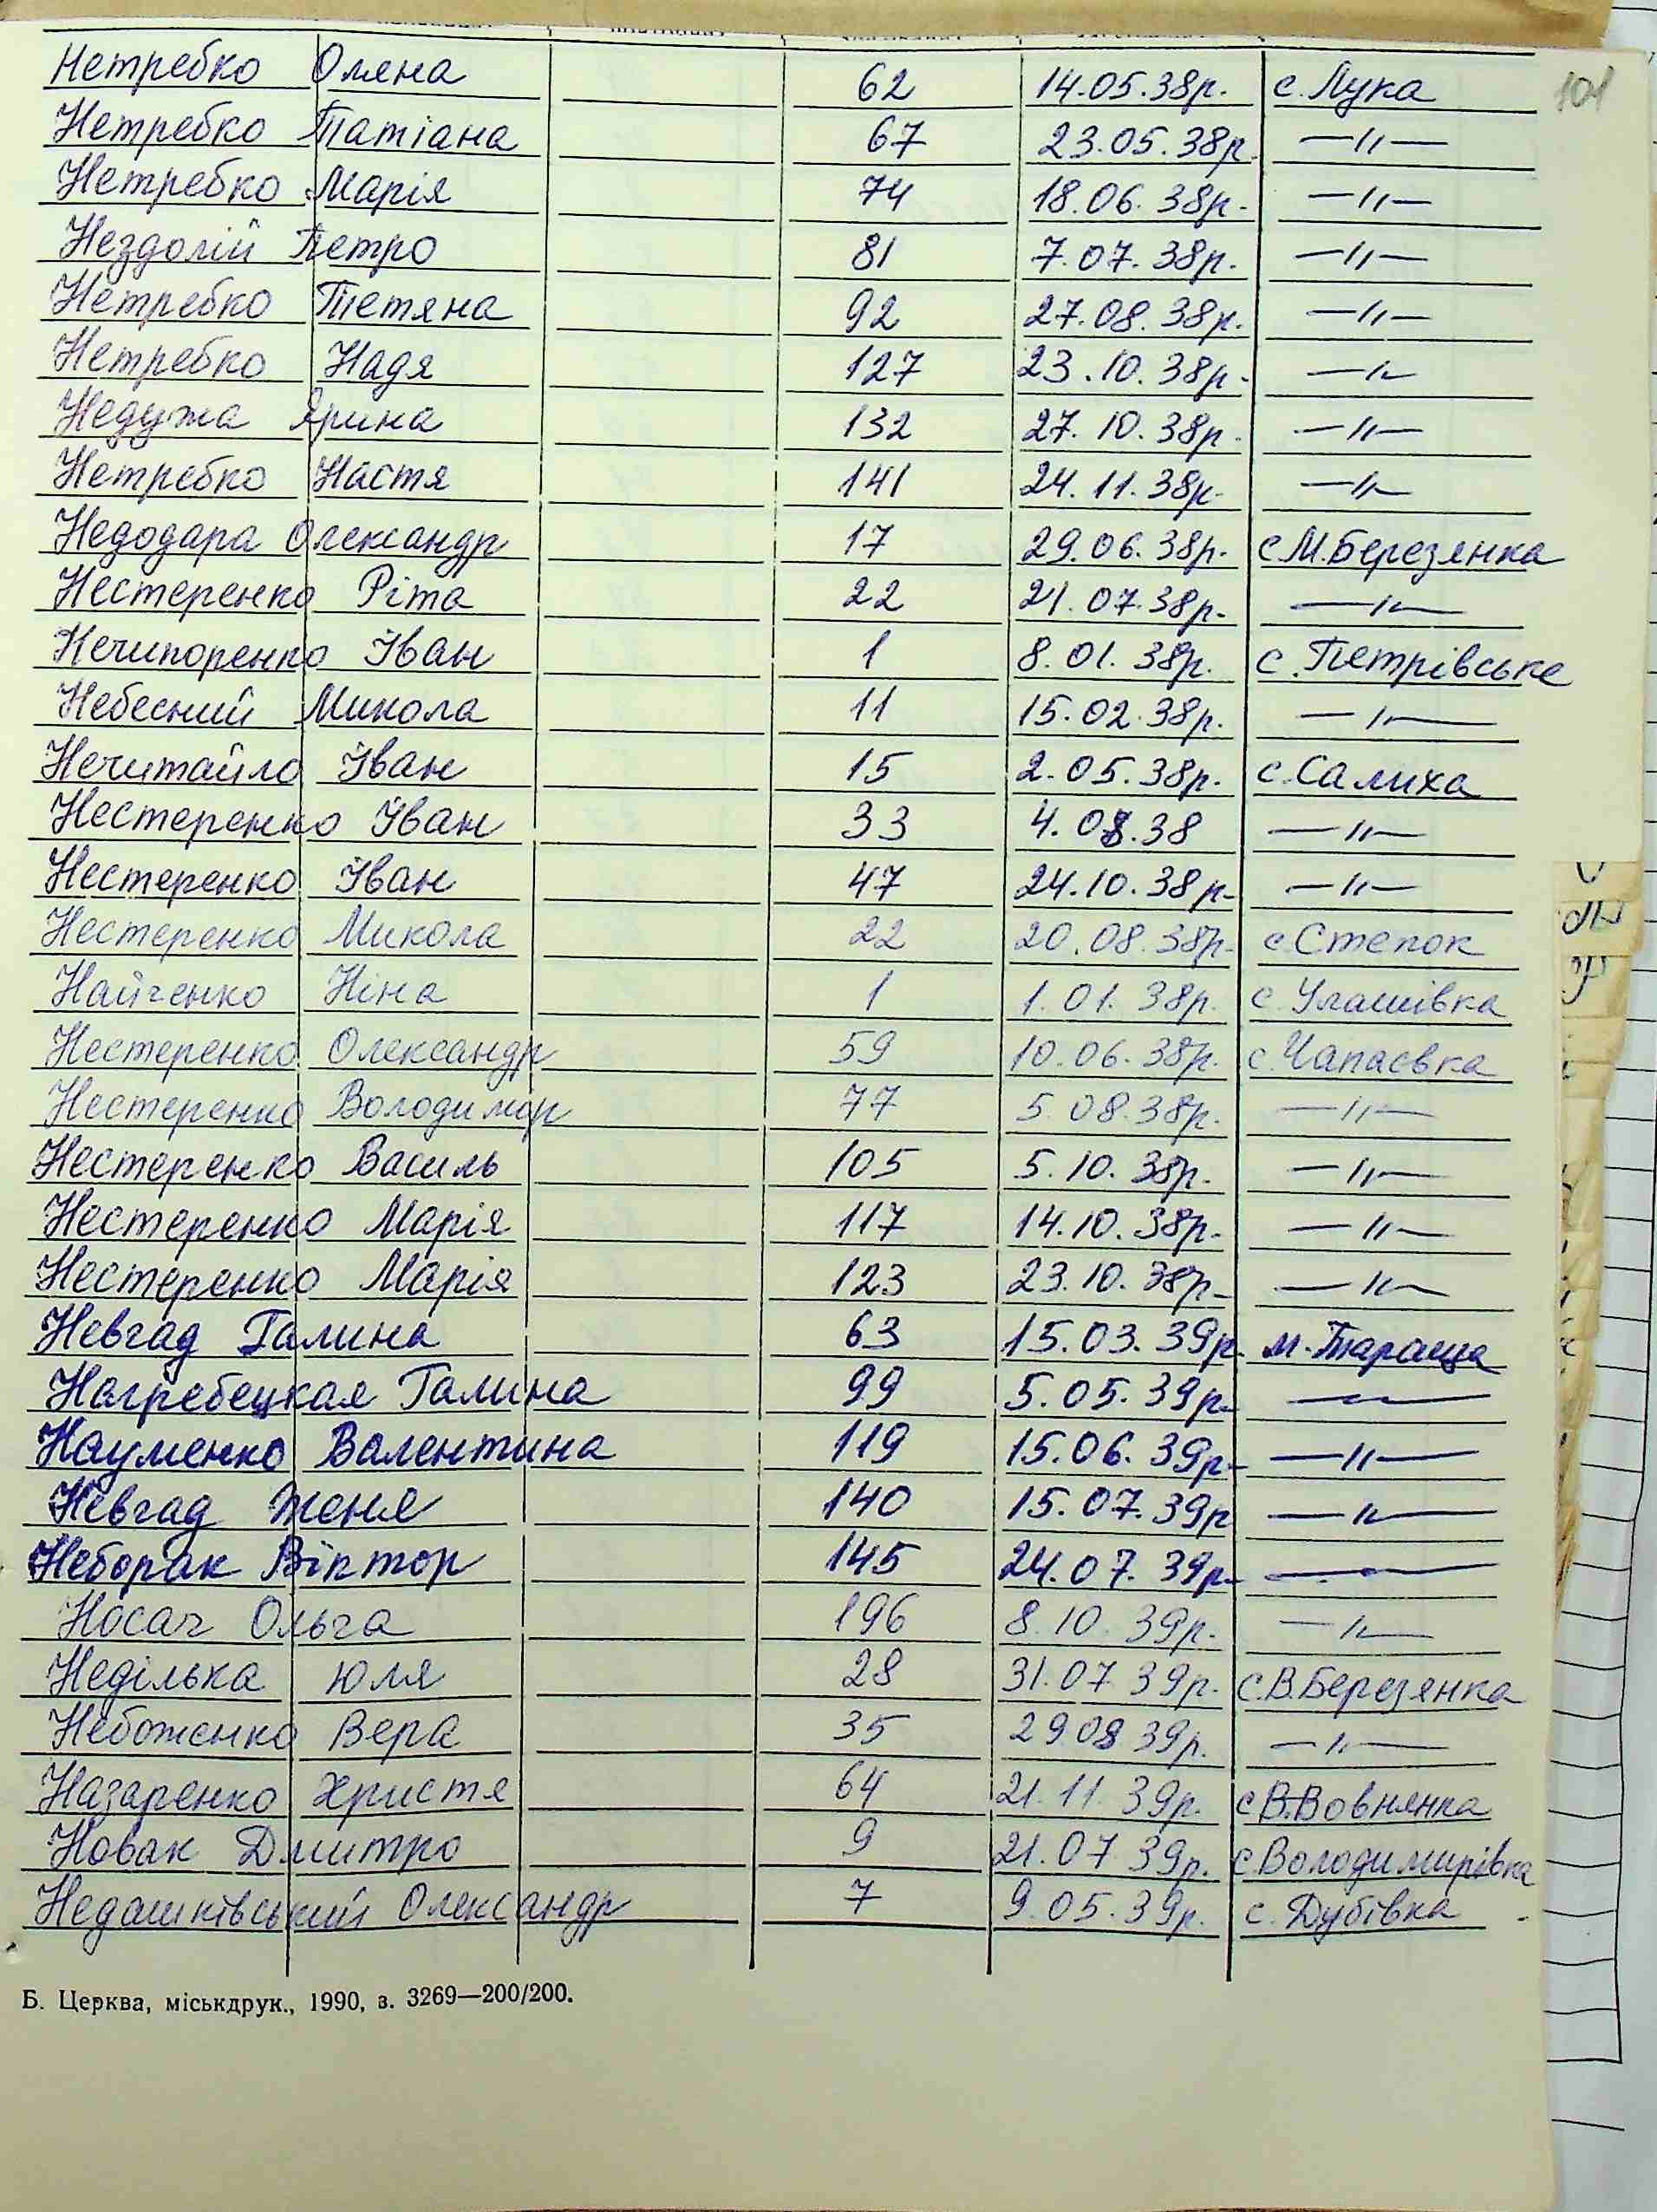 Нетребко Олена 62 14.05.38р. с. Лука 101
Нетребко Татіана 67 23.05.38р. —"—
Нетребко Марія 74 18.06.38р. —"—
Нездолій Петро 81 7.07.38р. —"—
Нетребко Тетяна 92 27.08.38р. —"—
Нетребко Надя 127 23.10.38р. —"—
Недужа Ярина 132 27.10.38р. —"—
Нетребко Настя 141 24.11.38р. —"—
Недодара Олександр 17 29.06.38р. с М.Березянка
Нестеренко Ріта 22 21.07.38р. —"—
Нечипоренко Іван 1 8.01.38р. с. Петрівське
Небесний Микола 11 15.02.38р. —"—
Нечитайло Іван 15 2.05.38р. с. Салиха
Нестеренко Іван 33 4.08.38 —"—
Нестеренко Іван 47 24.10.38р. —"—
Нестеренко Микола 22 20.08.38р. с. Степок
Найченко Ніна 1 1.01.38р. с. Улашівка
Нестеренко Олександр 59 10.06.38р. с. Чапаєвка
Нестеренко Володимир 77 5.08.38р. —"—
Нестеренко Василь 105 5.10.38р. —"—
Нестеренко Марія 117 14.10.38р. —"—
Нестеренко Марія 123 23.10.38р. —"—
Невгад Галина 63 15.03.39р. м. Тараща
Нагребецкая Галина 99 5.05.39р. —"—
Науменко Валентина 119 15.06.39р. —"—
Невгад Женя 140 15.07.39р —"—
Неборак Віктор 145 24.07.39р. —"—
Носач Ольга 196 8.10.39р. —"—
Неділька Юля 28 31.07.39р. с.В.Березянка
Небоженко Вера 35 29.08.39р. —"—
Назаренко Христя 64 21.11.39р. с В.Вовнянка
Новак Дмитро 9 21.07.39р. с.Володимирівка
Недашківський Олександр 7 9.05.39р. с. Дубівка
Б. Церква, міськдрук., 1990, з. 3269—200/200.